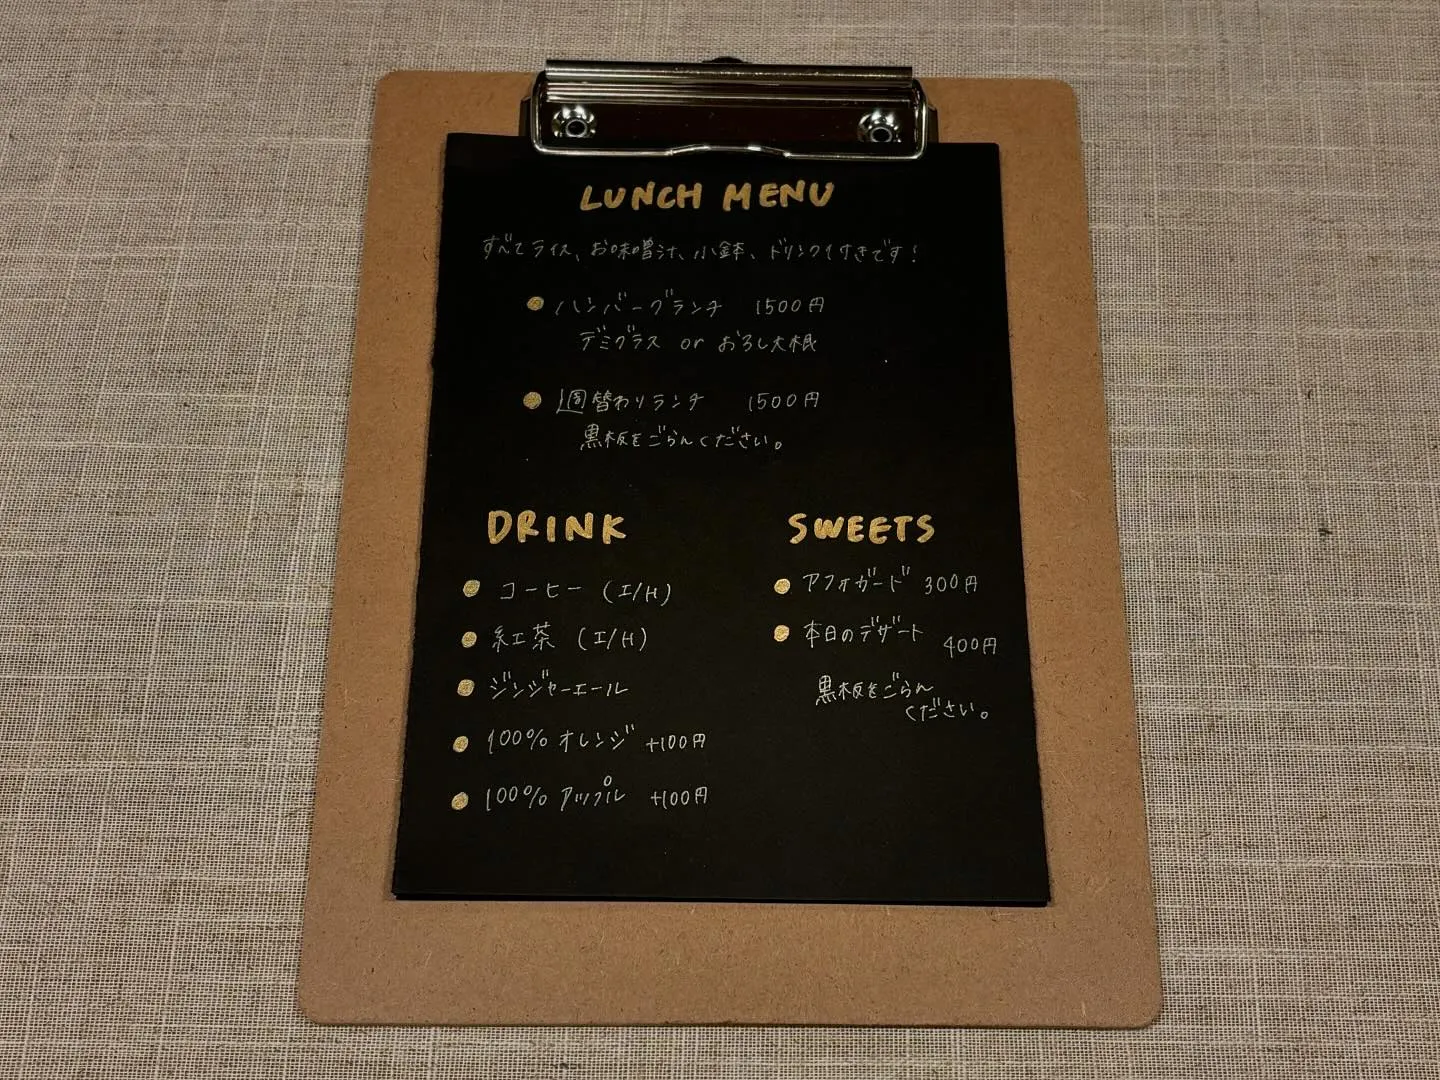 LUNCH MENU
すべてライス、お味噌汁、小鉢、ドリンク付きです！
ハンバーグランチ 1500円
デミグラス or おろし大根
1週替わりランチ 1500円
黒板をごらんください。
DRINK
コーヒー (I/H)
紅茶 (I/H)
ジンジャーエール
100% オレンジ +100円
100% アップル +100円
SWEETS
アフォガード 300円
本日のデザート 400円
黒板をごらん
ください。